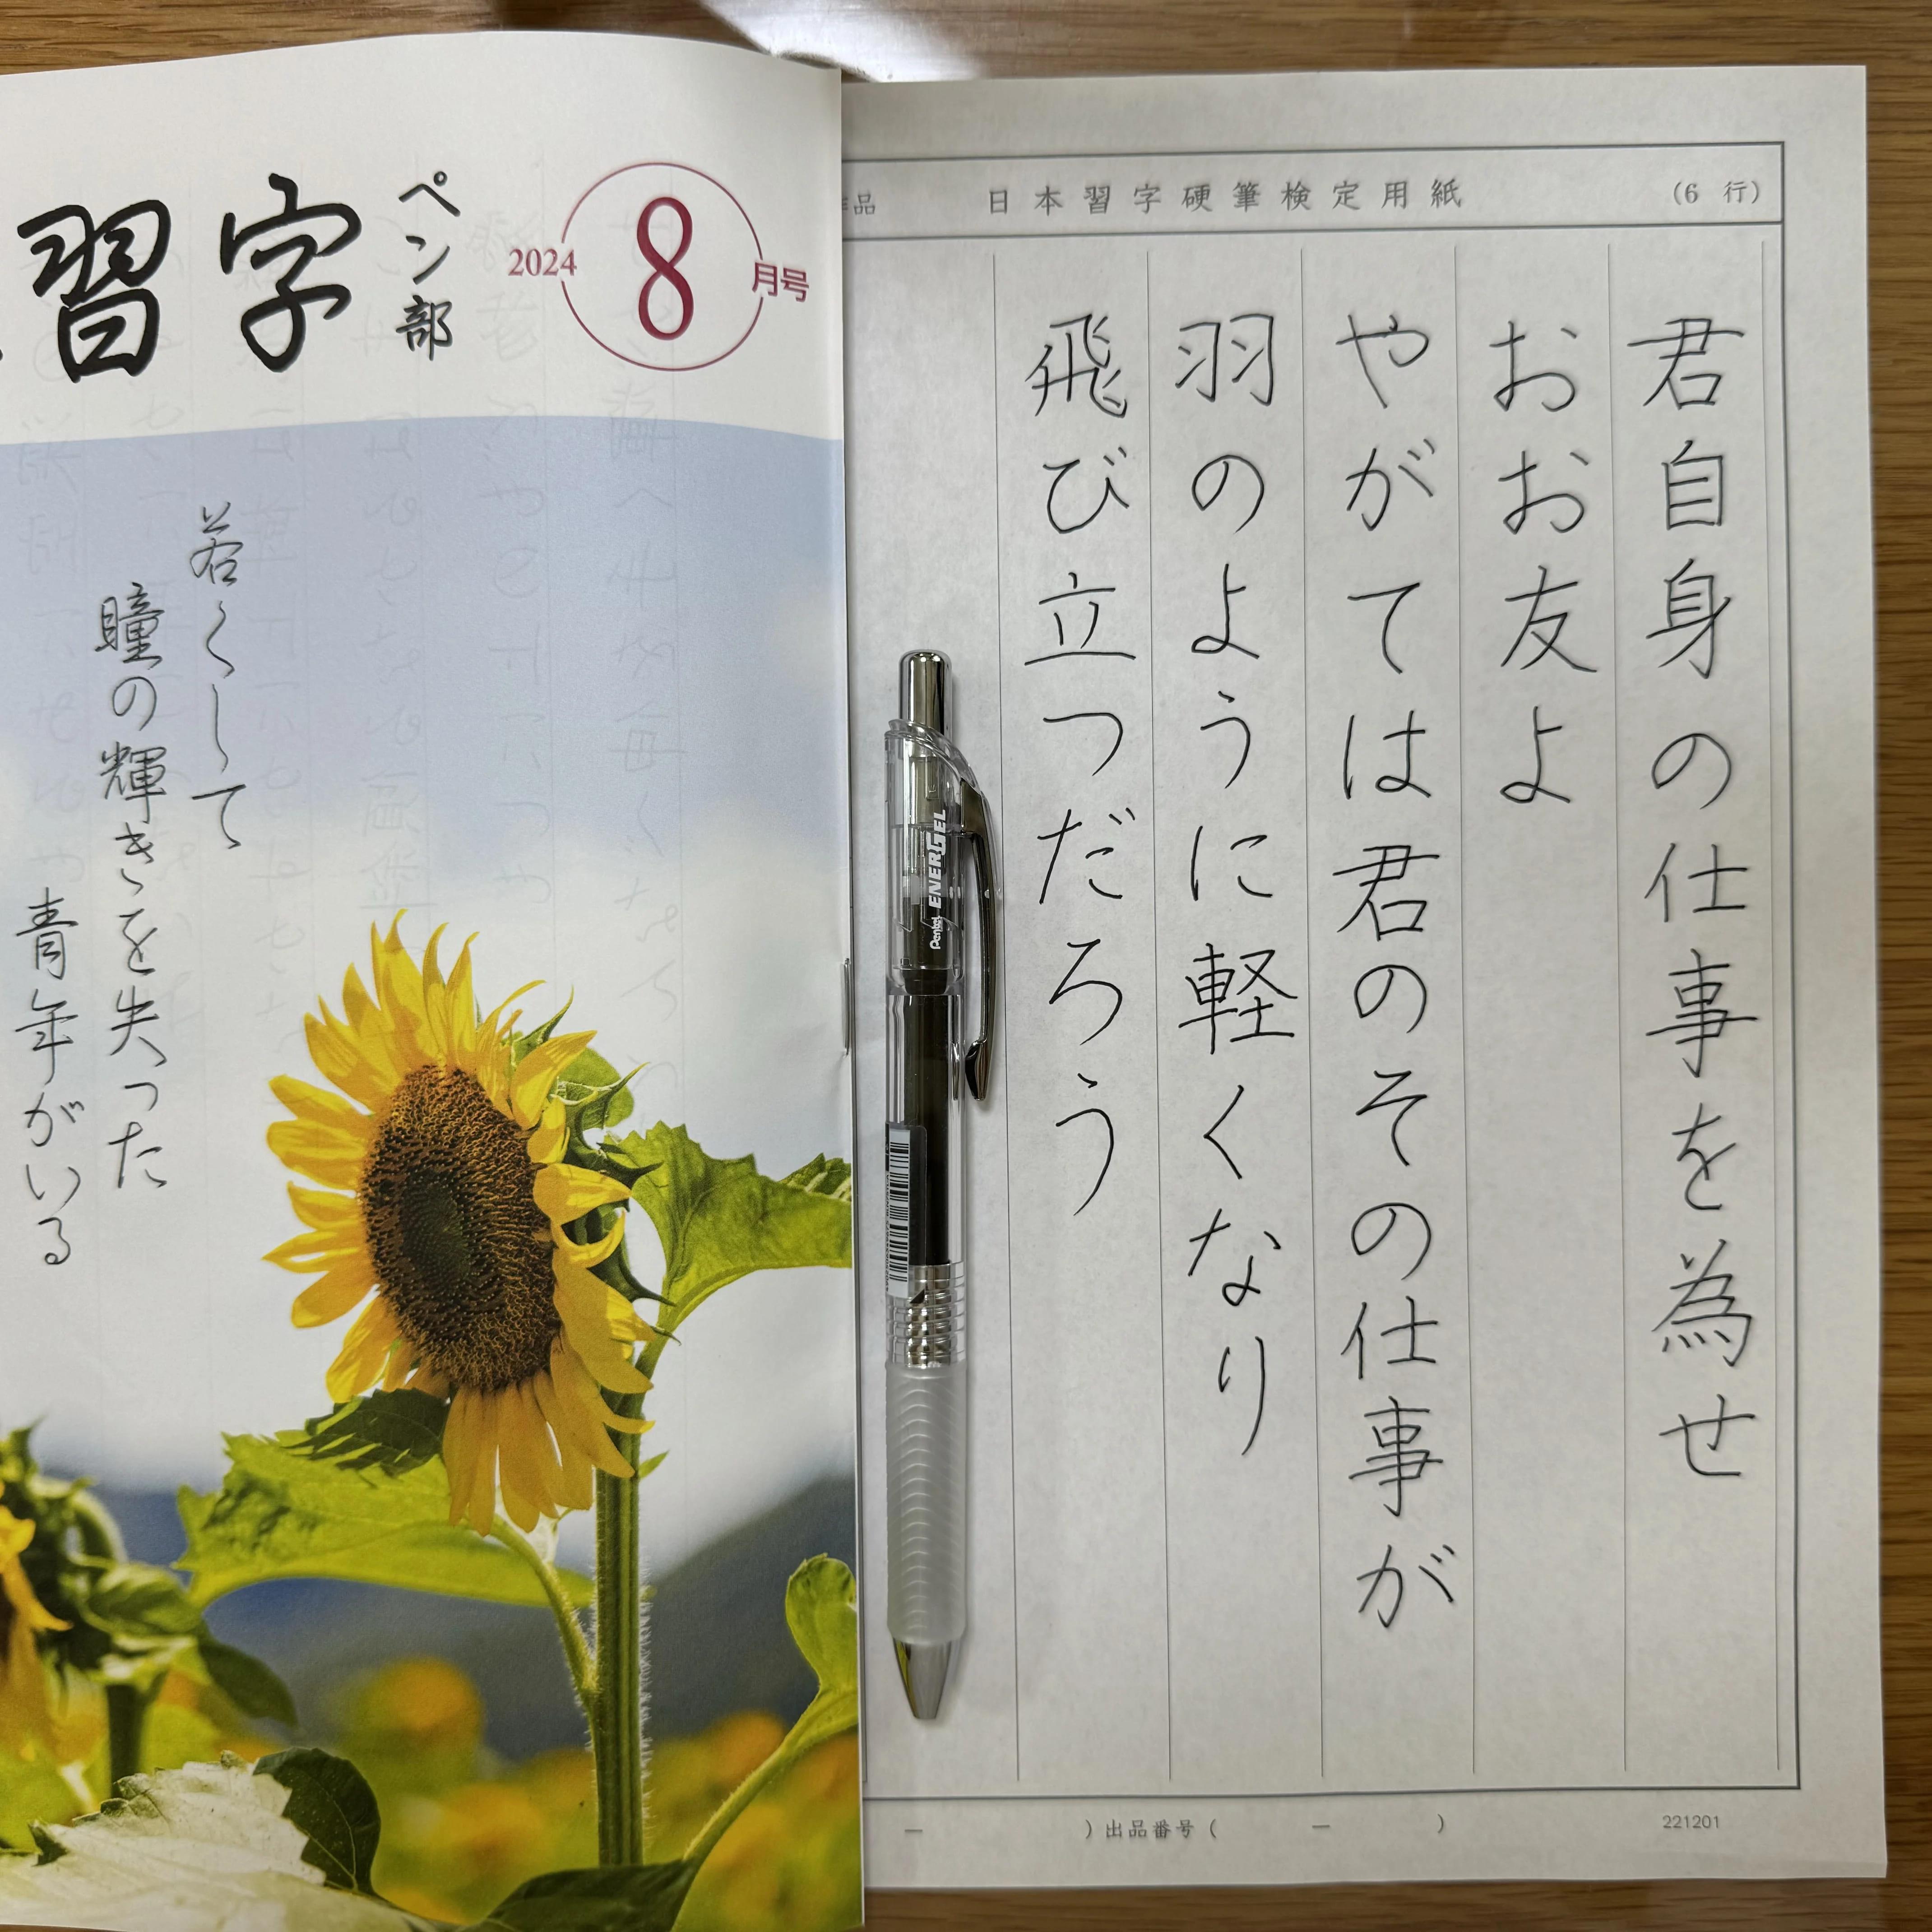 習字
ペン部
2024
8
月号
若くして
瞳の輝きを失った
青年がいる
品
日本習字硬筆検定用紙
(6 行)
君自身の仕事を為せ
おお友よ
やがては君のそその仕事が
羽のように軽くなり
飛び立つだろう
Pentel ENERGEL
)出品番号( ー )
221201